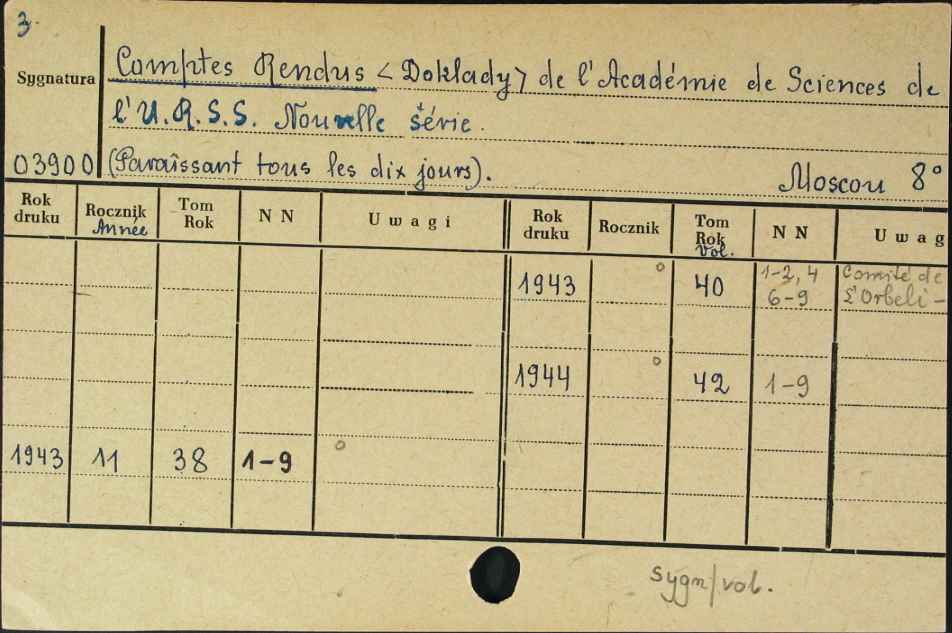 3.
Sygnatura
Comptes Rendus <Doklady> de l'Académie de Sciences de
l'U.R.S.S. Nouvelle série.
03900 (Paraîssant tous les dix jours). Moscou 8°
Rok druku Rocznik Année Tom Rok N N Uwagi Rok druku Rocznik Tom Rok Vol. N N Uwag
1943 o 40 1-2, 4 Comité de
6-9 L'Orbeli-
1944 o 42 1-9
1943 11 38 1-9 o
sygn/vol.